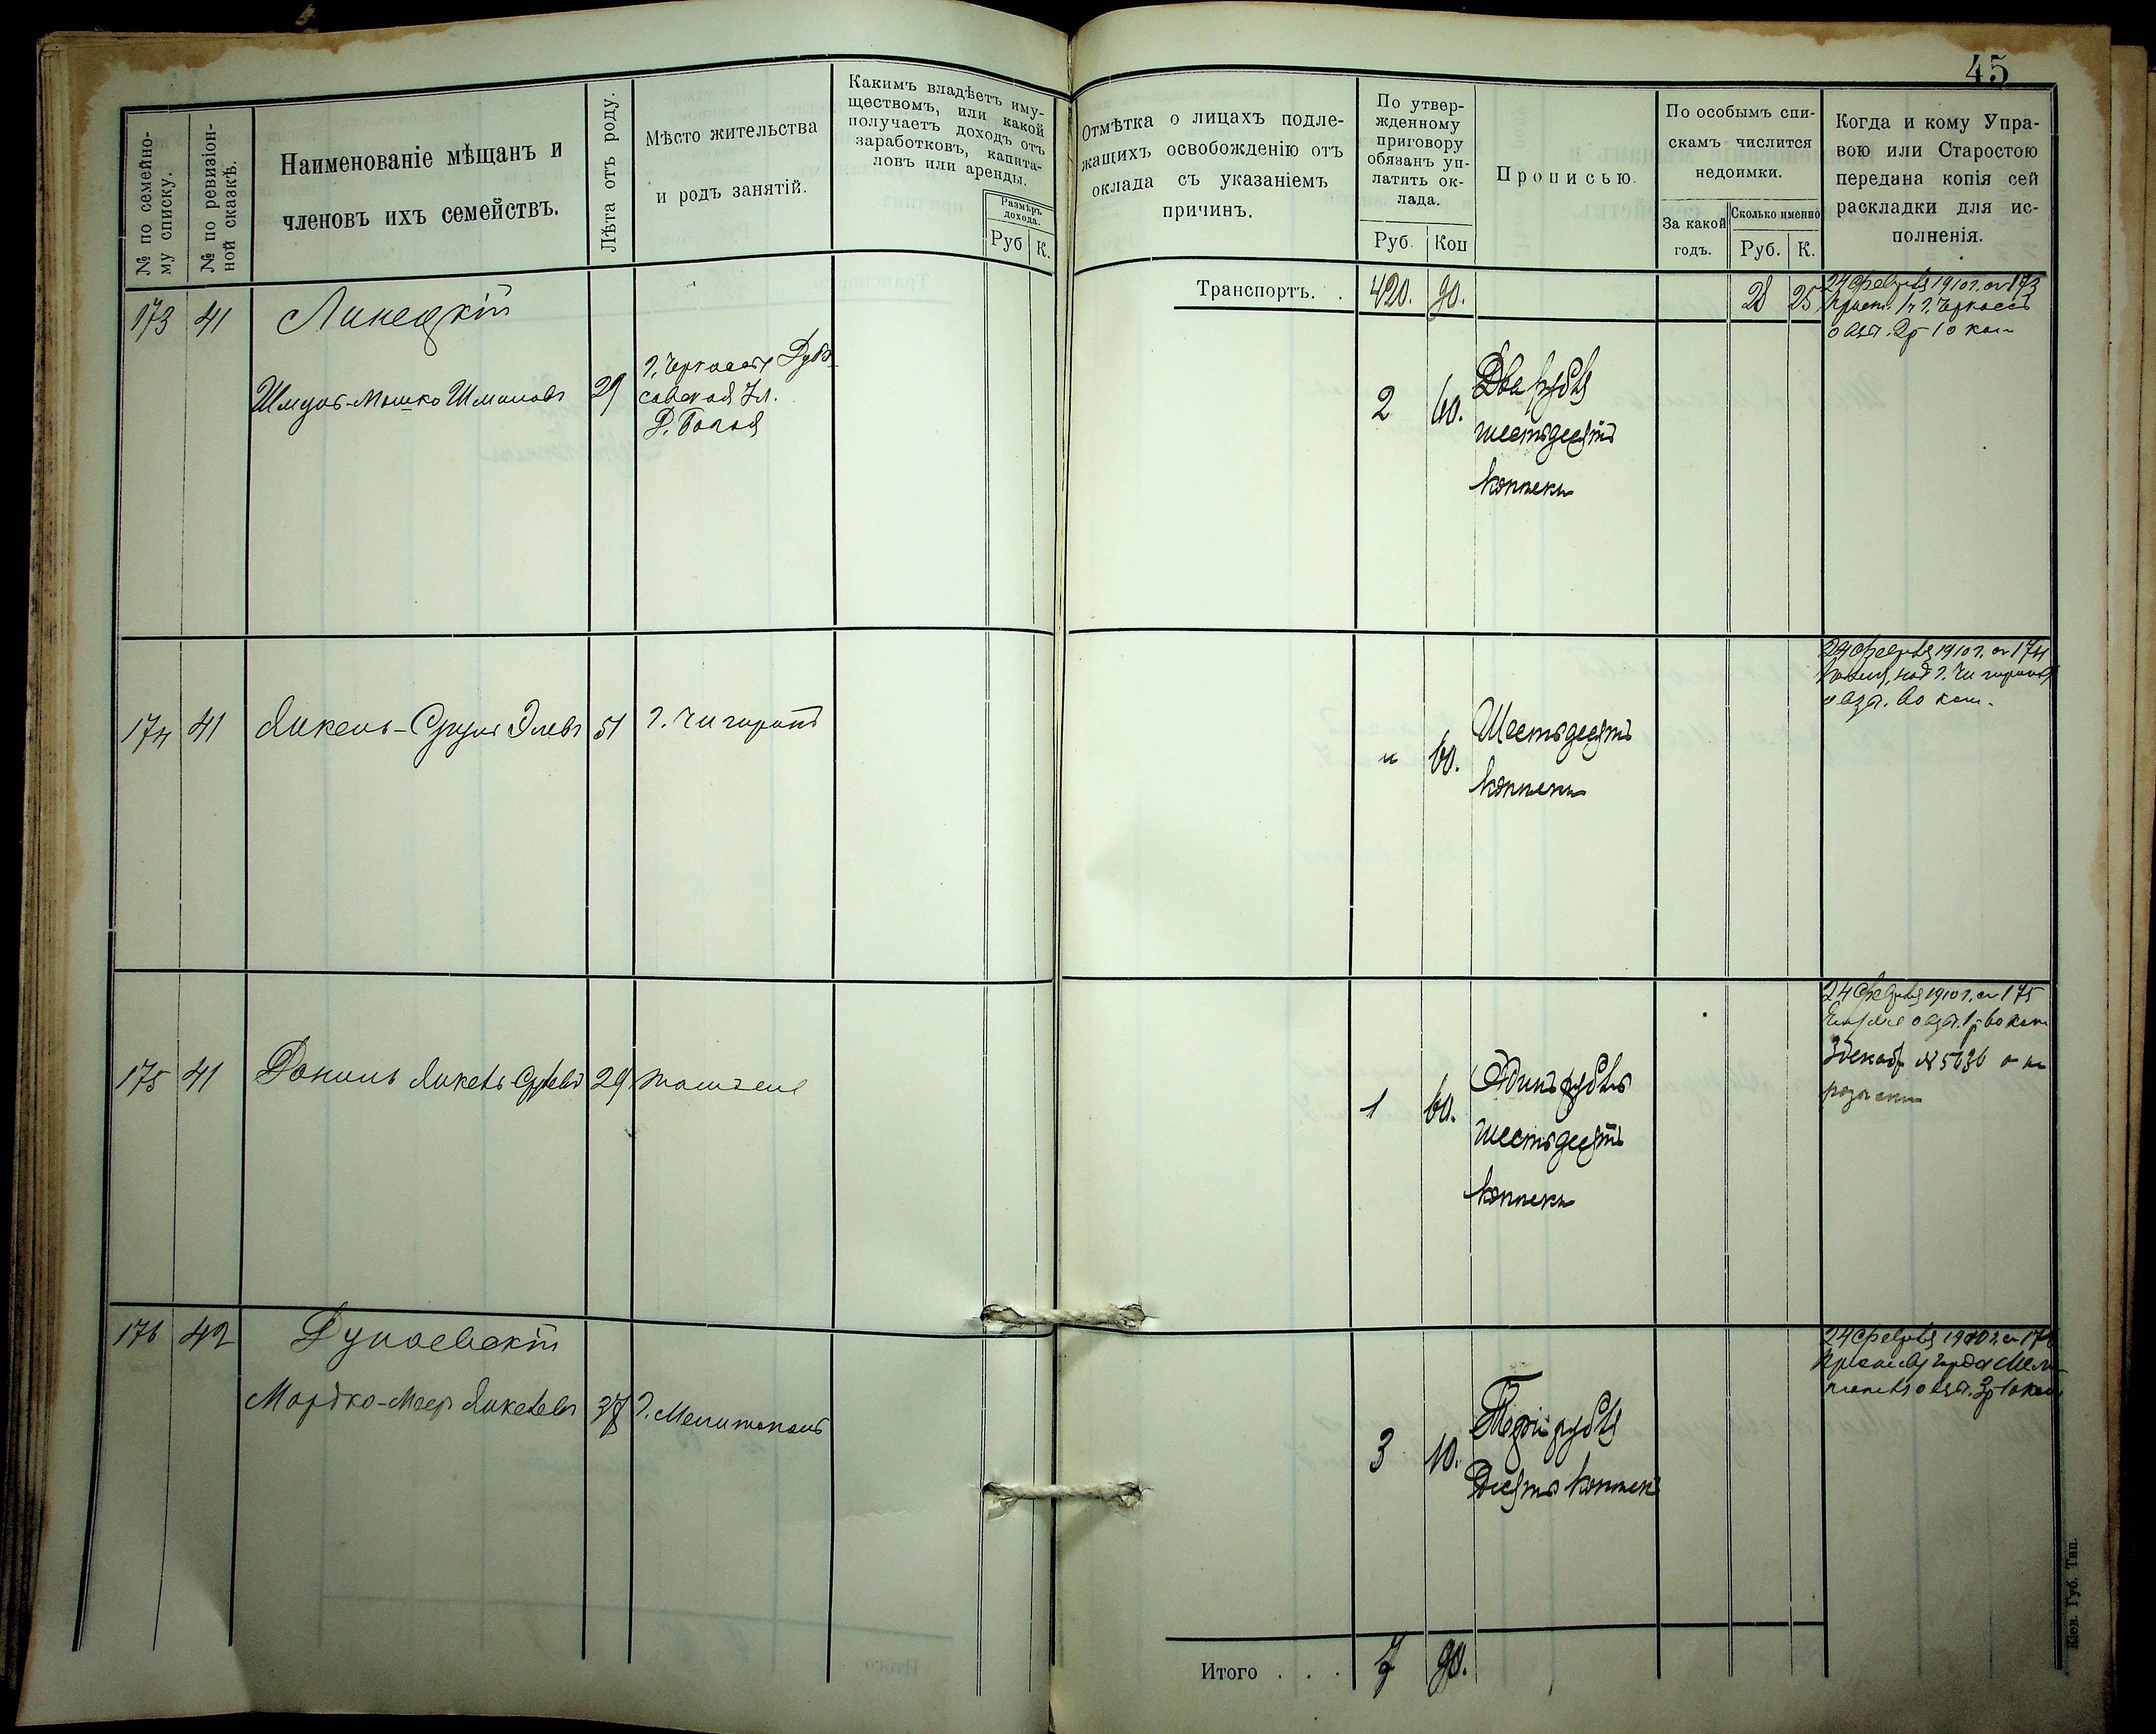 45
№ по семейно-
му списку.
№ по ревизіон-
ной сказкѣ.
Наименованіе мѣщанъ и
членовъ ихъ семействъ.
Лѣта отъ роду.
Мѣсто жительства
и родъ занятій.
Какимъ владѣетъ иму-
ществомъ, или какой
получаетъ доходъ отъ
заработковъ, капита-
ловъ или аренды.
Размѣръ
дохода.
Руб К.
Отмѣтка о лицахъ подле-
жащихъ освобожденію отъ
оклада съ указаніемъ
причинъ.
По утвер-
жденному
приговору
обязанъ уп-
латить ок-
лада.
Руб. Коп
Прописью.
По особымъ спи-
скамъ числится
недоимки.
За какой
годъ.
Сколько именно
Руб. К.
Когда и кому Упра-
вою или Старостою
передана копія сей
раскладки для ис-
полненія.
Транспортъ. . 420. 90. 28 25
173 41 Линецкій
Шмуль-Мошко 29
г. Черкассы
Д. Бѣлой
2 60.
Два рубля
шестьдесятъ
копѣекъ
24 февраля 1910 г. 173
г. Черкассъ
о взы. 2 р 10 коп
174 41 Янкель-Сруль 51 г. Чигиринъ
" 60.
Шестьдесятъ
копѣекъ
24 февраля 1910 г. 174
г. Чигиринъ
о взы. 60 коп.
175 41 Даниль Янкель 29 тамъ же
1 60.
Одинъ рубль
шестьдесятъ
копѣекъ
24 февраля 1910 г. 175
о взы. 1 р 60 коп
3 декабр № 5636 о
розыски
176 42 Дунаевскій
Мордко-Меер Янкелев 37 г. Мелитополь
3 10.
Три рубля
десять копѣекъ
24 февраля 1910 г. 176
о взы. 3 р 10 коп
Итого . . . 7 90.
Кіев. Губ. Тип.